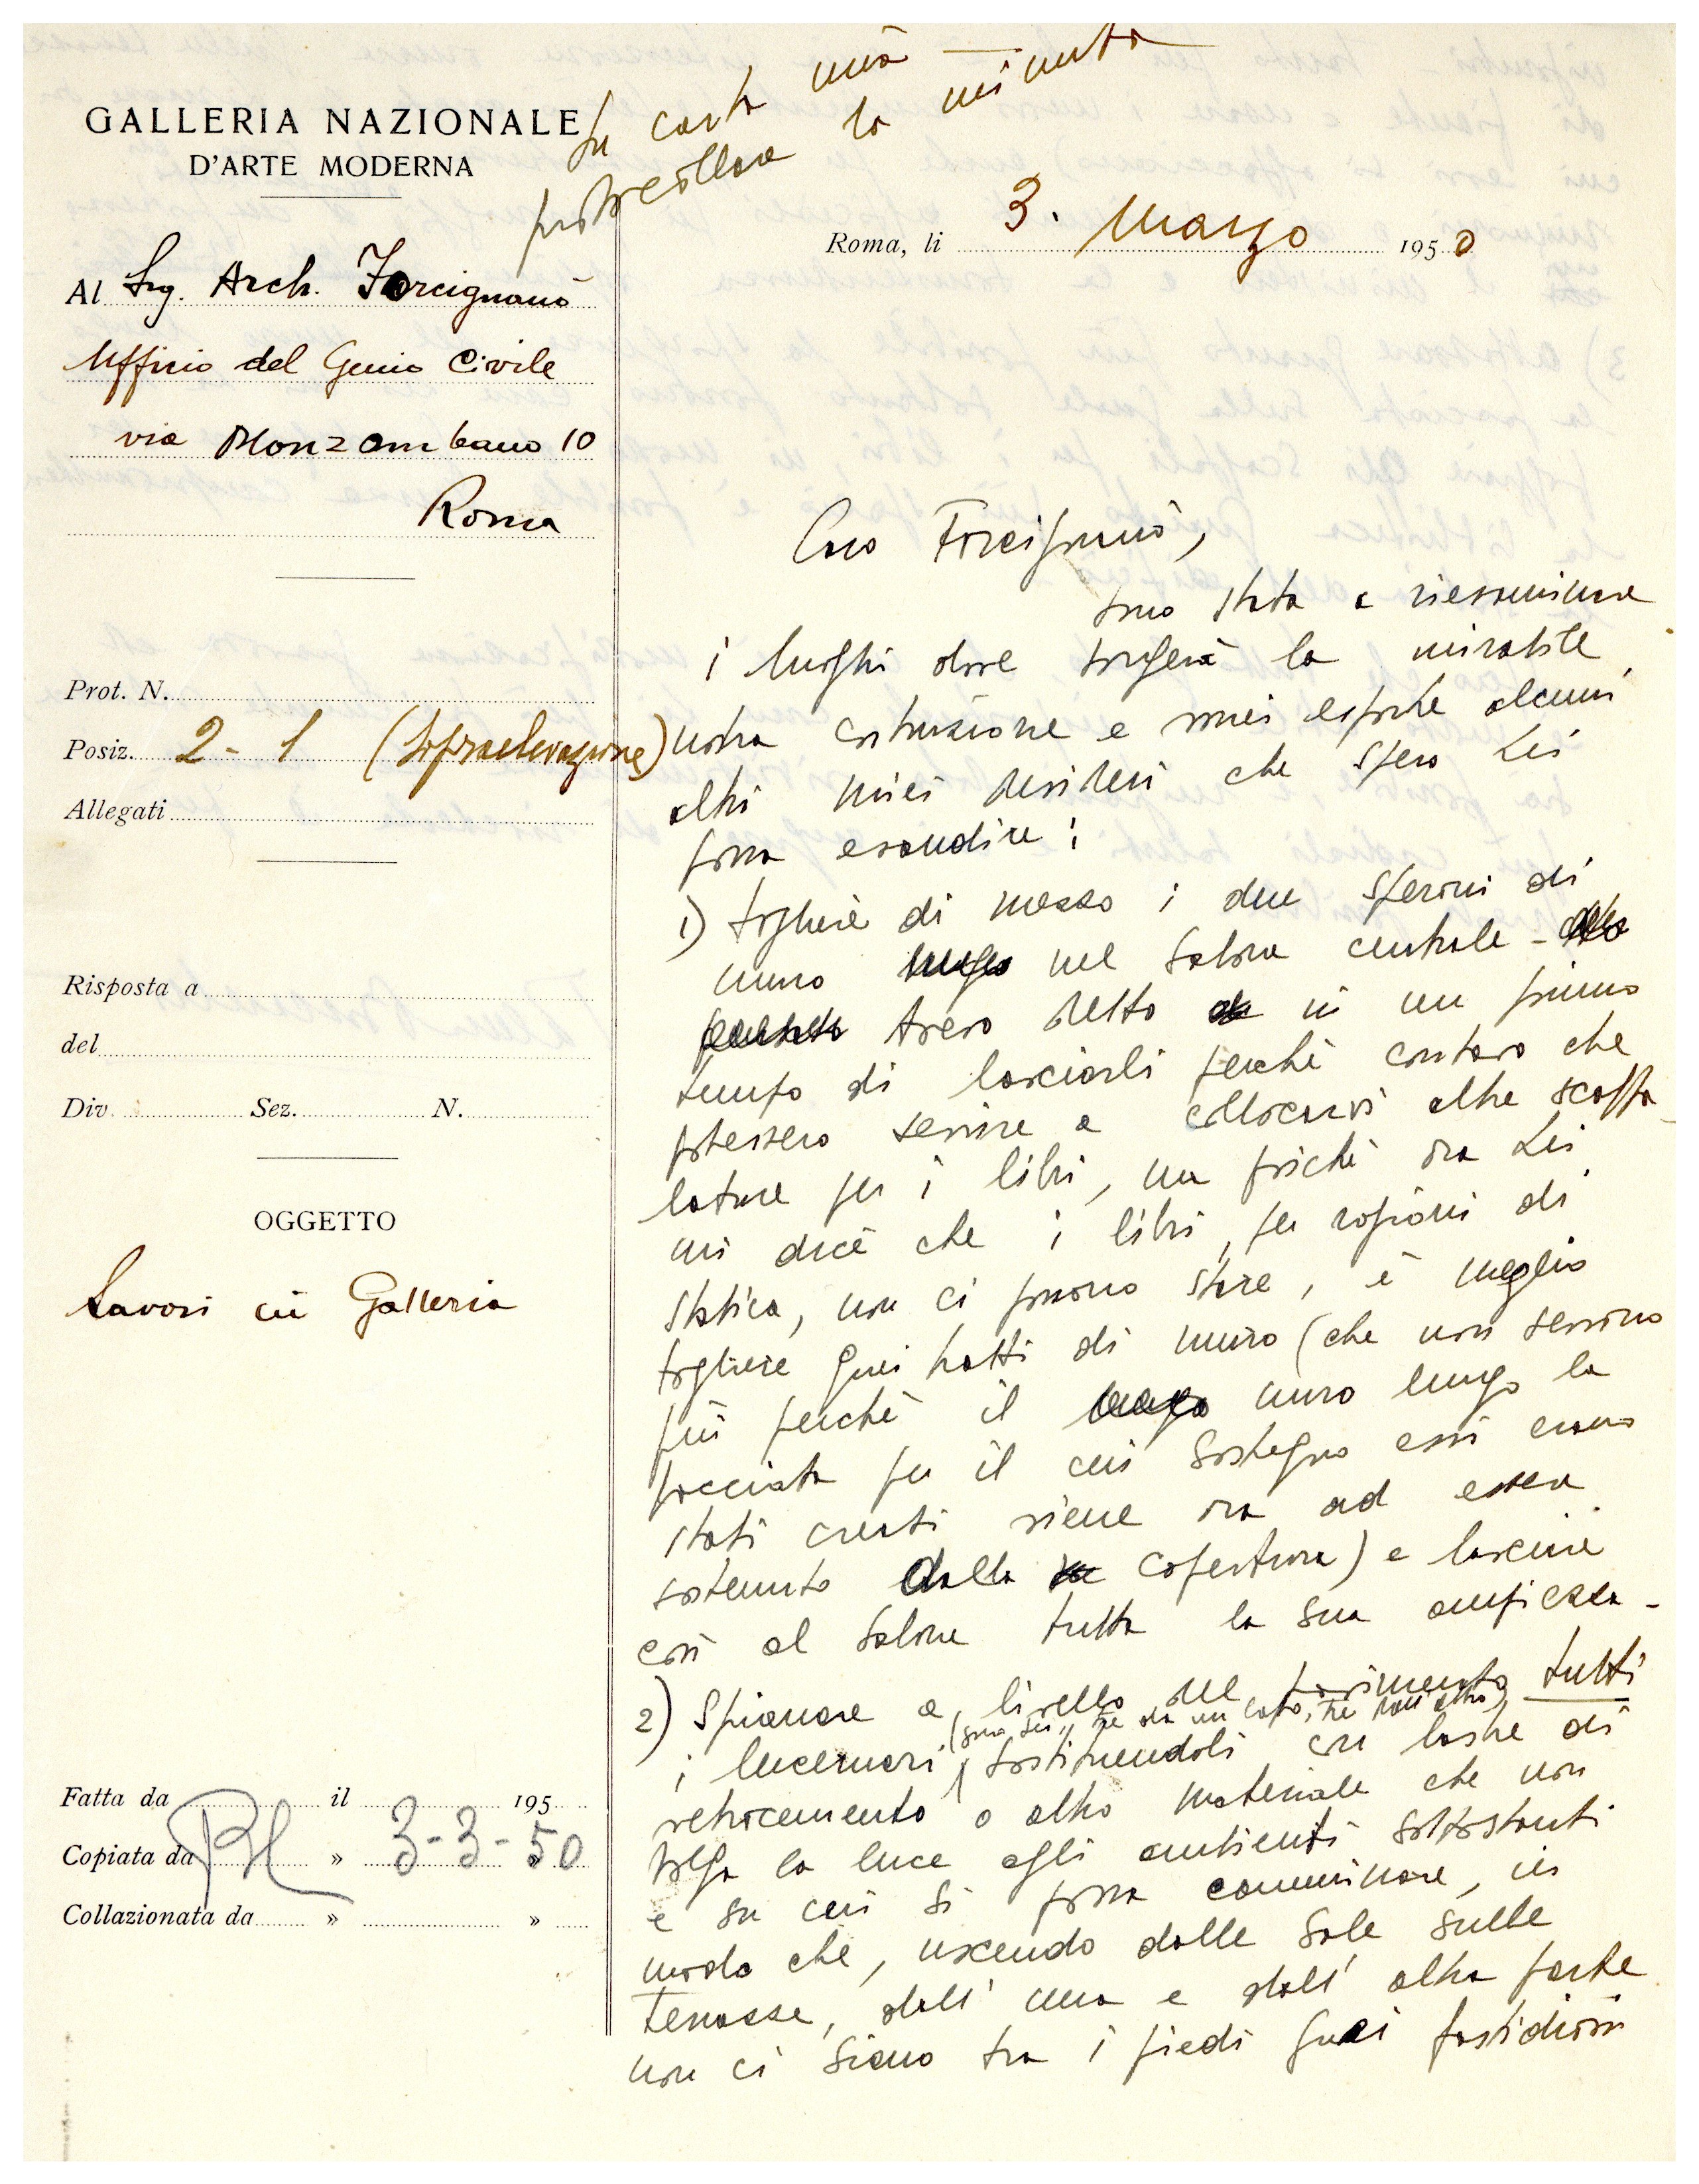 Su carta mia
protocollare la minuta
GALLERIA NAZIONALE
D'ARTE MODERNA
Roma, li 3. Marzo 1950
Al Sig. Arch. Forcignanò
Ufficio del Genio Civile
via Monzambano 10
Roma
Prot. N.
Posiz. 2-1 (sopraelevazione)
Allegati
Risposta a
del
Div. Sez. N.
OGGETTO
Lavori in Galleria
Fatta da il 195
Copiata da » 3-3-50
Collazionata da » »
Caro Forcignanò,
sono stata a riesaminare
i luoghi dove sorgerà la mirabile
nostra costruzione e vorrei esporle alcuni
altri miei desideri che spero Lei
possa esaudire:
1) togliere di mezzo i due speroni di
muro nel salone centrale -
Avevo detto in un primo
tempo di lasciarli perché contavo che
potessero servire a collocarvi altre scaffa-
lature per i libri, ma poiché ora Lei
mi dice che i libri, per ragioni di
statica, non ci possono stare, è meglio
togliere quei tratti di muro (che non servono
più perché il muro lungo la
facciata per il cui sostegno essi erano
stati creati viene ora ad essere
sostenuto dalla copertura) e lasciare
così al salone tutta la sua ampiezza -
2) Spianare a livello del pavimento tutti
i lucernari (sono sei, tre da un lato, tre dall'altro), sostituendoli con lastre di
vetrocemento o altro materiale che non
tolga la luce agli ambienti sottostanti
e su cui si possa camminare, in
modo che, uscendo dalle sale sulle
terrazze, dall'una e dall'altra parte
non ci siano tra i piedi quei fastidiosi